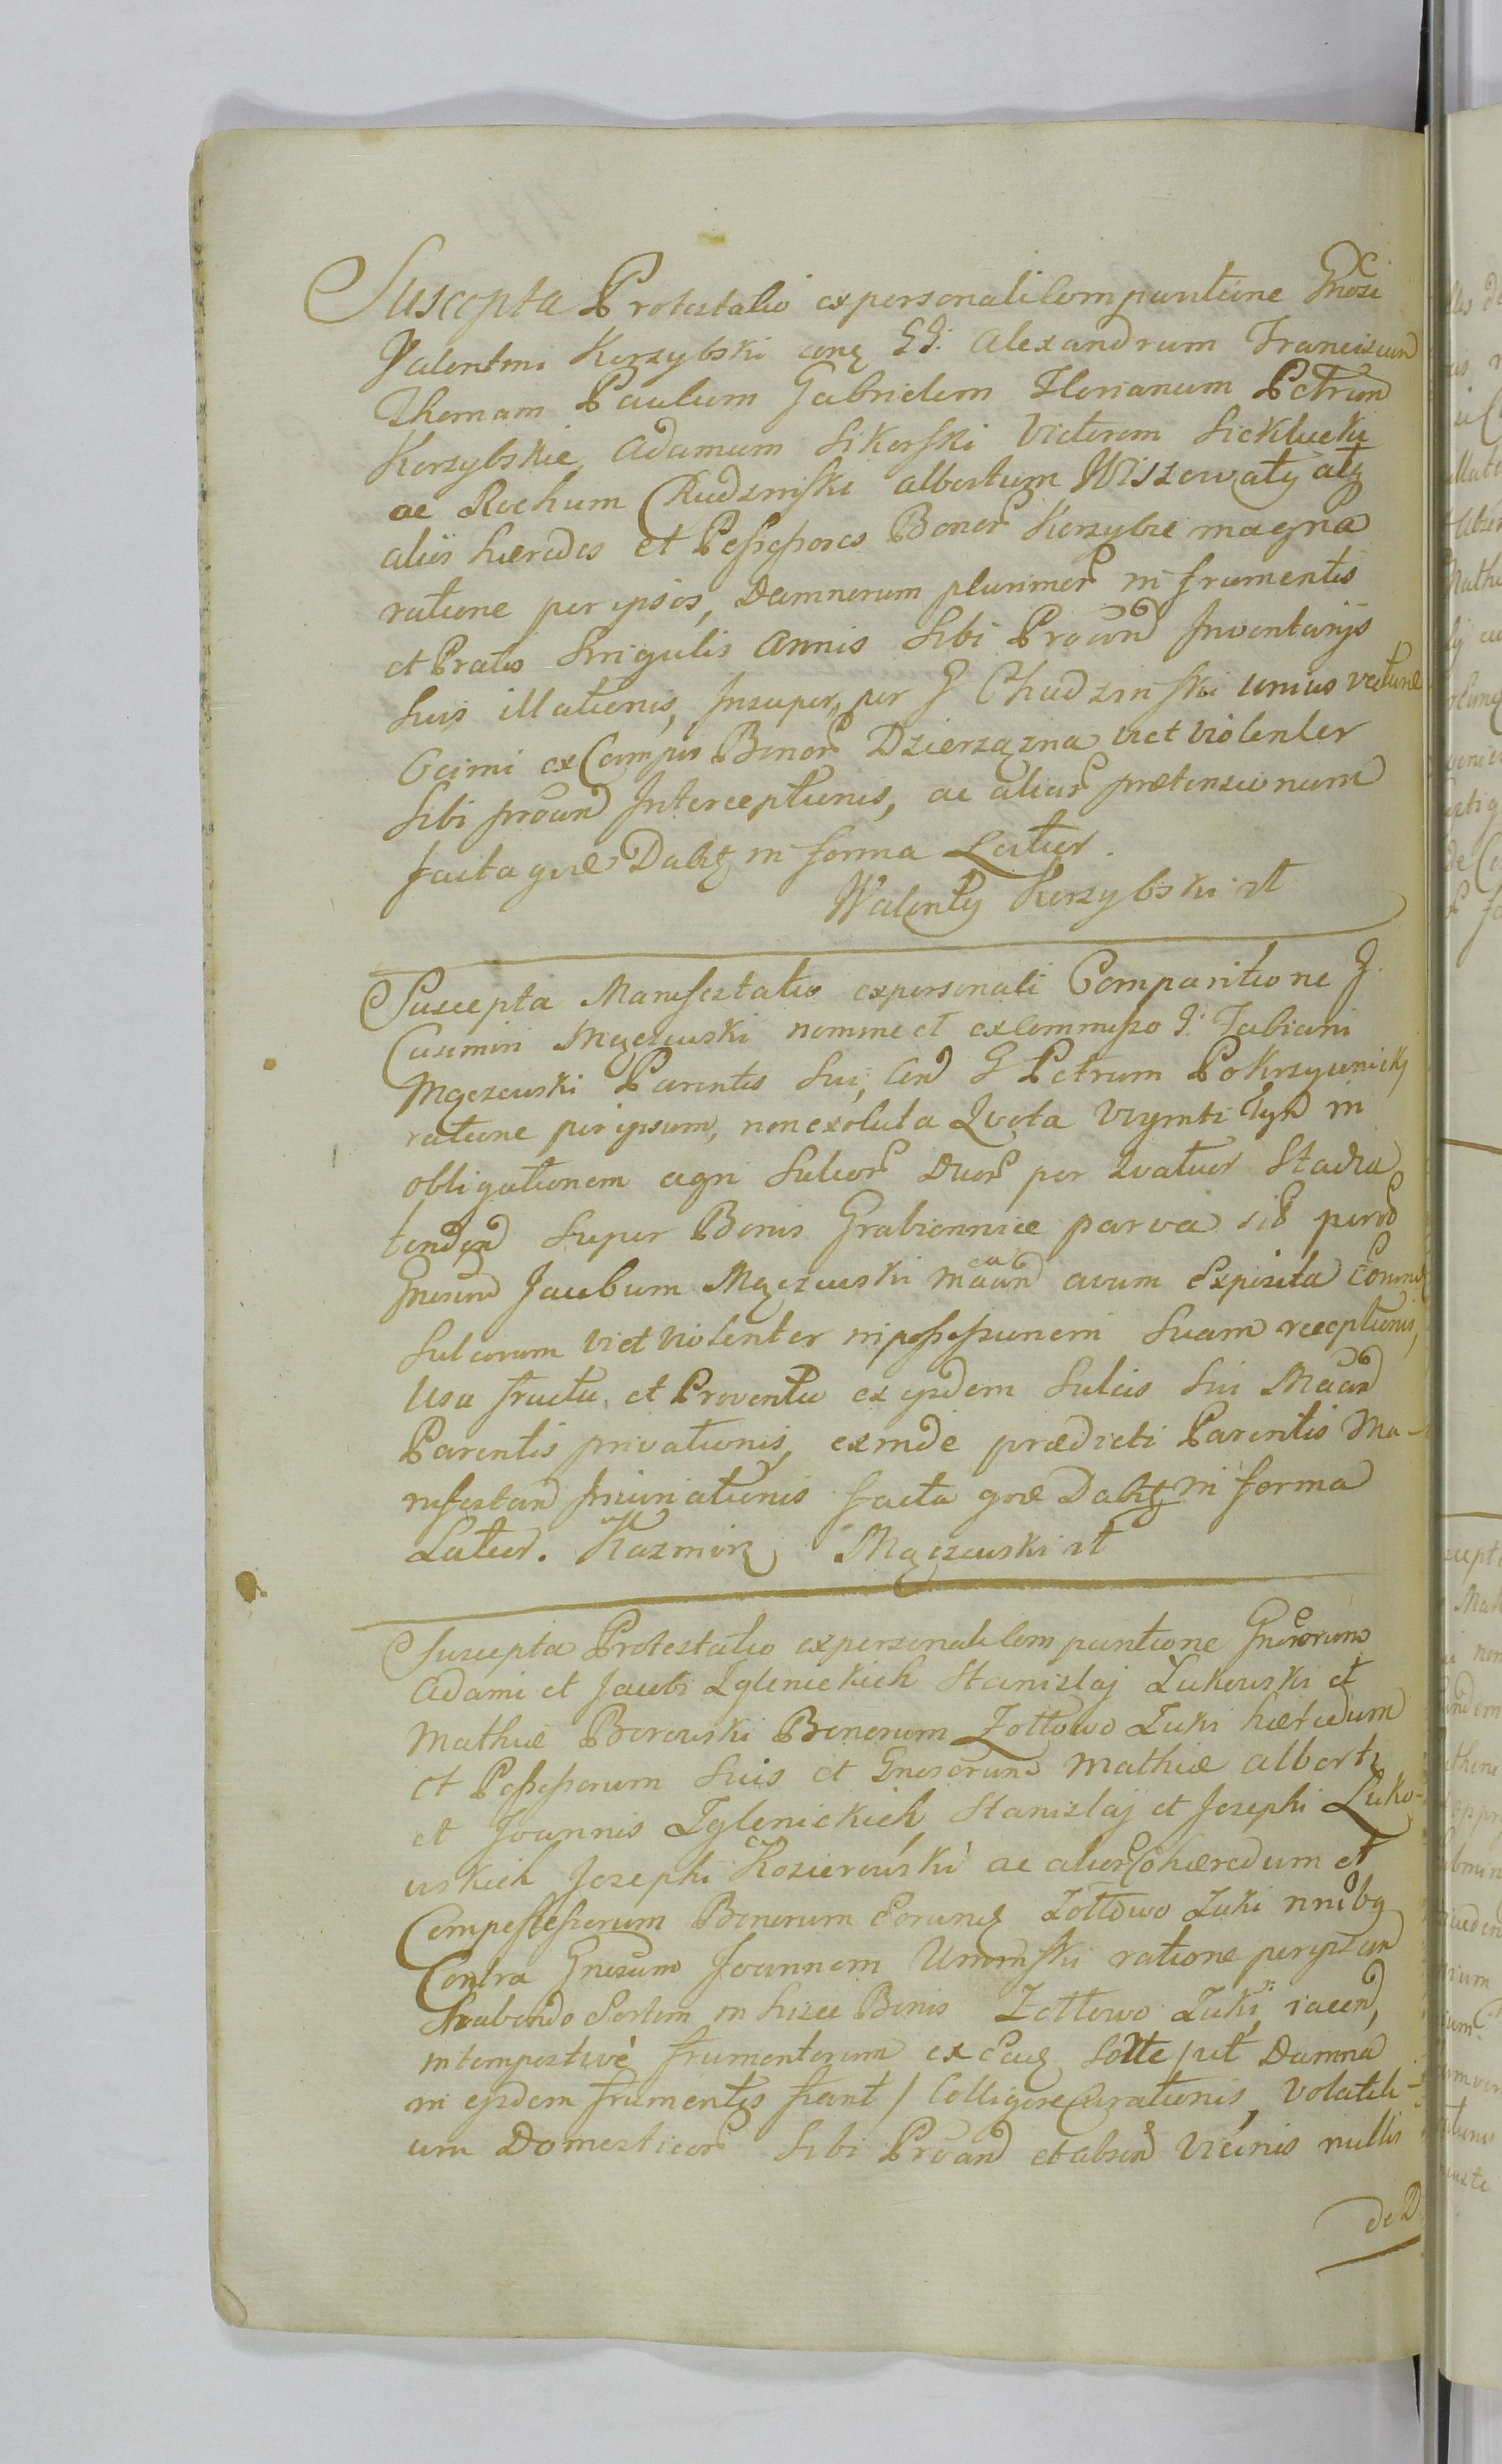 Suscepta Protestatio ex personali Comparitione Gnosi
Valentini Korzybski conq GG. Alexandrum Franciscum
Thomam Paulum Gabrielem Florianum Petrum
Korzybskie Adamum Sikorski Victorem Sieklucki
ac Rochum Chudzinski Albertum Wiszowaty atq
aliis hæredes et Possessores Bonor Korzybie magna
ratione per ipsos, Damnorum plurimor in frumentis
et Pratis Singulis Annis Sibi Proãnd Inventarijs
Suis illationis, Insuper, per G Chudzinski unius vecturæ
ex Campis Bonor Dzierzązna vi et violenter
Sibi proãnd Interceptionis, ac aliar prætensionum
facta quæ Dabit in forma Latior.
Walenty Korzybski st
Suscepta Manifestatio ex personali Comparitione G.
Casimiri Mączewski nomine et ex Commisso G. Fabiani
Mączewski Parentis Sui, G Petrum Pokrzywnicky
ratione per ipsum, non exoluta Quota Viginti Tyn in
obligationem agri Sulcor Duor per Quatuor Stadia
tendend Super Bonis Grabionnice parva sib
Gnosum Jacobum Mączewski mãnd avum Exposita
Sulcorum vi et violenter in possessionem Suam receptionis,
Usu fructu, et Proventu ex ijsdem Sulcis Sui Mãnd
Parentis privationis, exinde prædicti Parentis Ma-
nifestand Iniuriationis facta quæ Dabit in forma
Latior. Kazmirz Mączewski st
Suscepta Protestatio ex personali Comparitione Gnosorum
Adami et Jacobi Zglenickich Stanislaj Lukowski et
Mathiæ Borowski Bonorum Zottowo Luki hæredum
et Possessorum Suis et Gnosorum Mathiæ Alberti
et Joannis Zglenickich, Stanislaj et Josephi Luko-
wskich Josephi Kozierowski ac alior Cohæredum et
Compossessorum Bonorum Eorunq Zottowo Luki nnibq
Contra Gnosum Joannem Uminski ratione per ipsum
habendo Sortem in hisce Bonis Zottowo Luki, iacend,
intempestive frumentorum ex Eaq Sorte /ut Damna
in ijsdem frumentis fiant/ Colligere Curationis, Volatili-
um Domesticor Sibi Proãnd et absend Vicinis nullis
de D